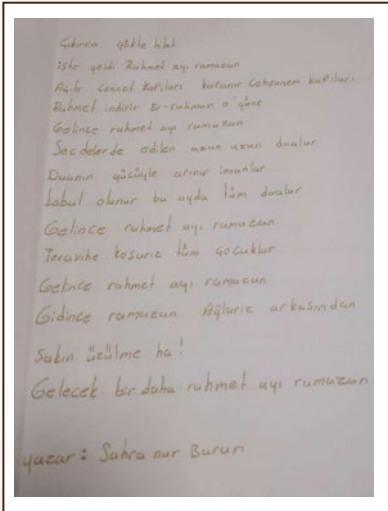 Çıkınca gökte hilal
işte geldi Rahmet ayı ramazan
Açılır cennet Kapıları kapanır Cehennem kapıları
Rahmet indirir Er-rahman o güne
Gelince rahmet ayı ramazan
Secdelerde edilen uzun uzun dualar
Duanın gücüyle arınır imanlar
kabul olunur bu ayda tüm dualar
Gelince rahmet ayı ramazan
Teravihe koşarız tüm çocuklar
Gelince rahmet ayı ramazan
Gidince ramazan Ağlarız arkasından
Sakın üzülme ha!
Gelecek bir daha rahmet ayı ramazan
yazar: Sahra nur Burun